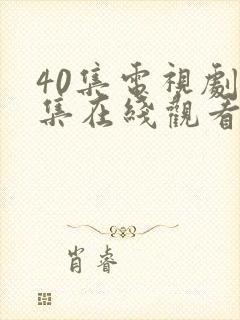 40集電視劇
集在綫觀看
肖睿